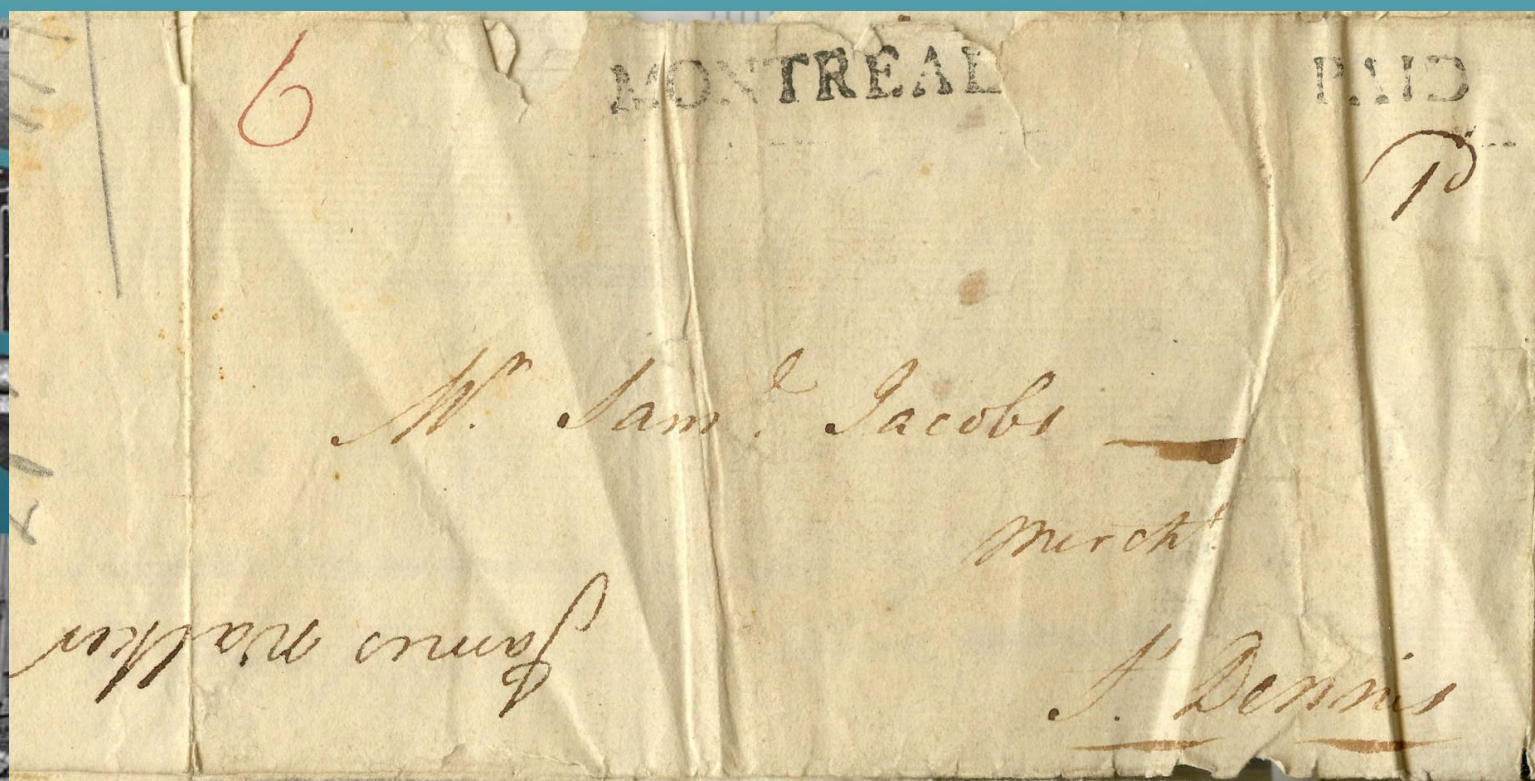 6 MONTREAL PAID
Pd
Mr. Saml. Jacobs
Mercht
St. Dennis
James Walker